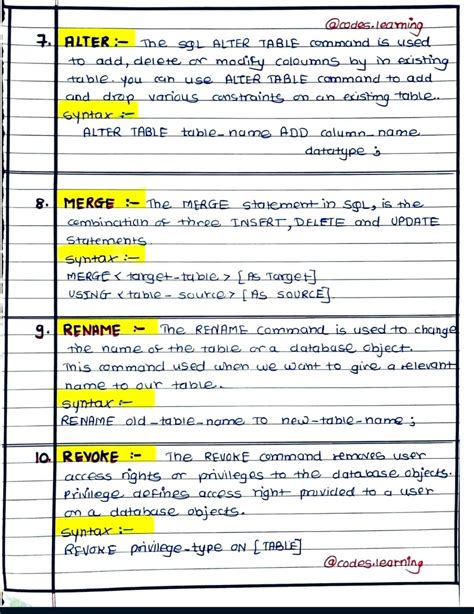 @codes.learning
7. ALTER :- The SQL ALTER TABLE command is used
to add, delete or modify coloumns by in existing
table. you can use ALTER TABLE command to add
and drop various constraints on an existing table..
syntax :-
ALTER TABLE table_name ADD column_name
datatype ;
8. MERGE :- The MERGE statement in SQL, is the
combination of three INSERT, DELETE and UPDATE
Statements.
syntax :-
MERGE < target-table > [AS Target]
USING < table-source > [AS SOURCE].
9. RENAME :- The RENAME command is used to change
the name of the table or a database object.
This command used when we want to give a relevant
name to our table.
syntax :-
RENAME old-table-name TO new-table-name ;
10. REVOKE :- The REVOKE command removes user
access rights or privileges to the database objects.
Privilege defines access right provided to a user
on a database objects.
syntax :-
REVOKE privilege-type ON [TABLE]
@codes.learning